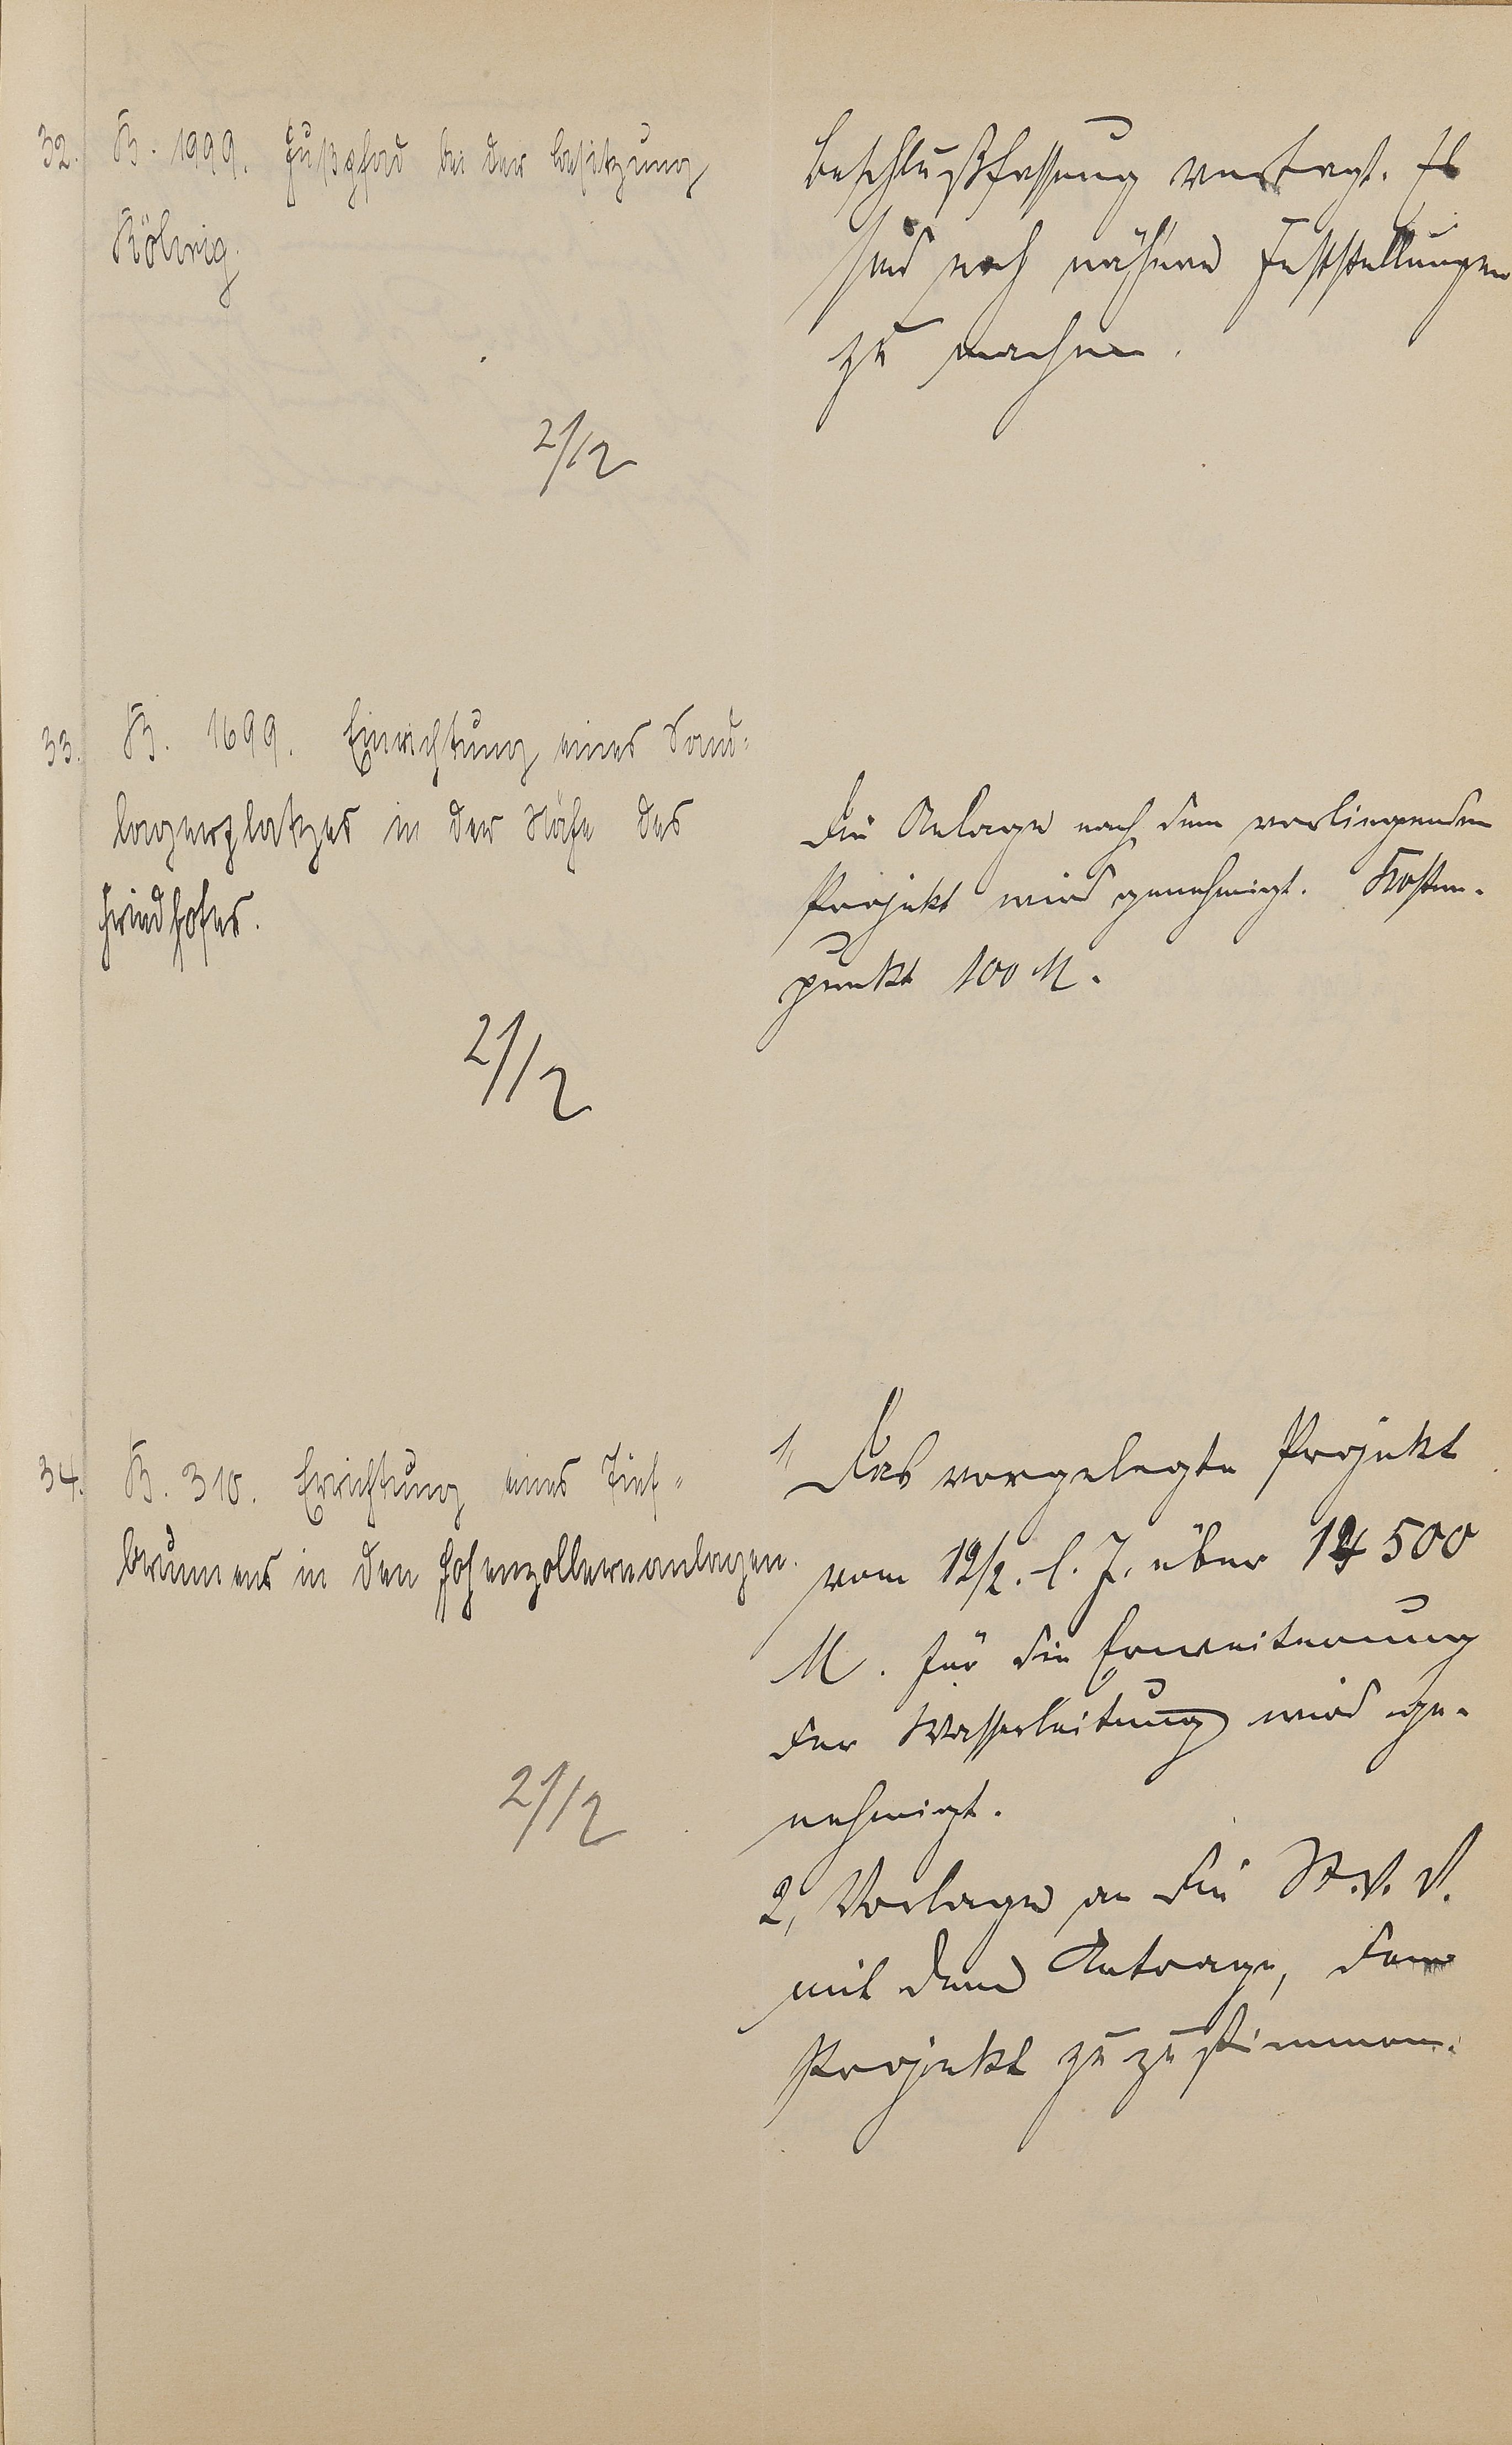 32. B. 1999. Fußpfad bei der Besitzung
Röhrig.
Beschlußfassung vertagt. Es
sind noch nähere Feststellungen
zu machen.
21/2
33. B. 1699. Einrichtung eines Sand-
lagerplatzes in der Nähe des
Friedhofes.
Die Anlage nach dem vorliegenden
Projekt wird genehmigt. Kosten-
punkt 100 M.
21/2
34. B. 310. Errichtung eines Tief-
brunnens in den Hohenzollernanlagen.
1, Das vorgelegte Projekt
vom 19/2. l. J. über 14 500
M. für die Erweiterung
der Wasserleitung wird ge-
nehmigt.
21/2
2, Vorlage an die St. V. V.
mit dem Antrage, dem
Projekt zuzustimmen.